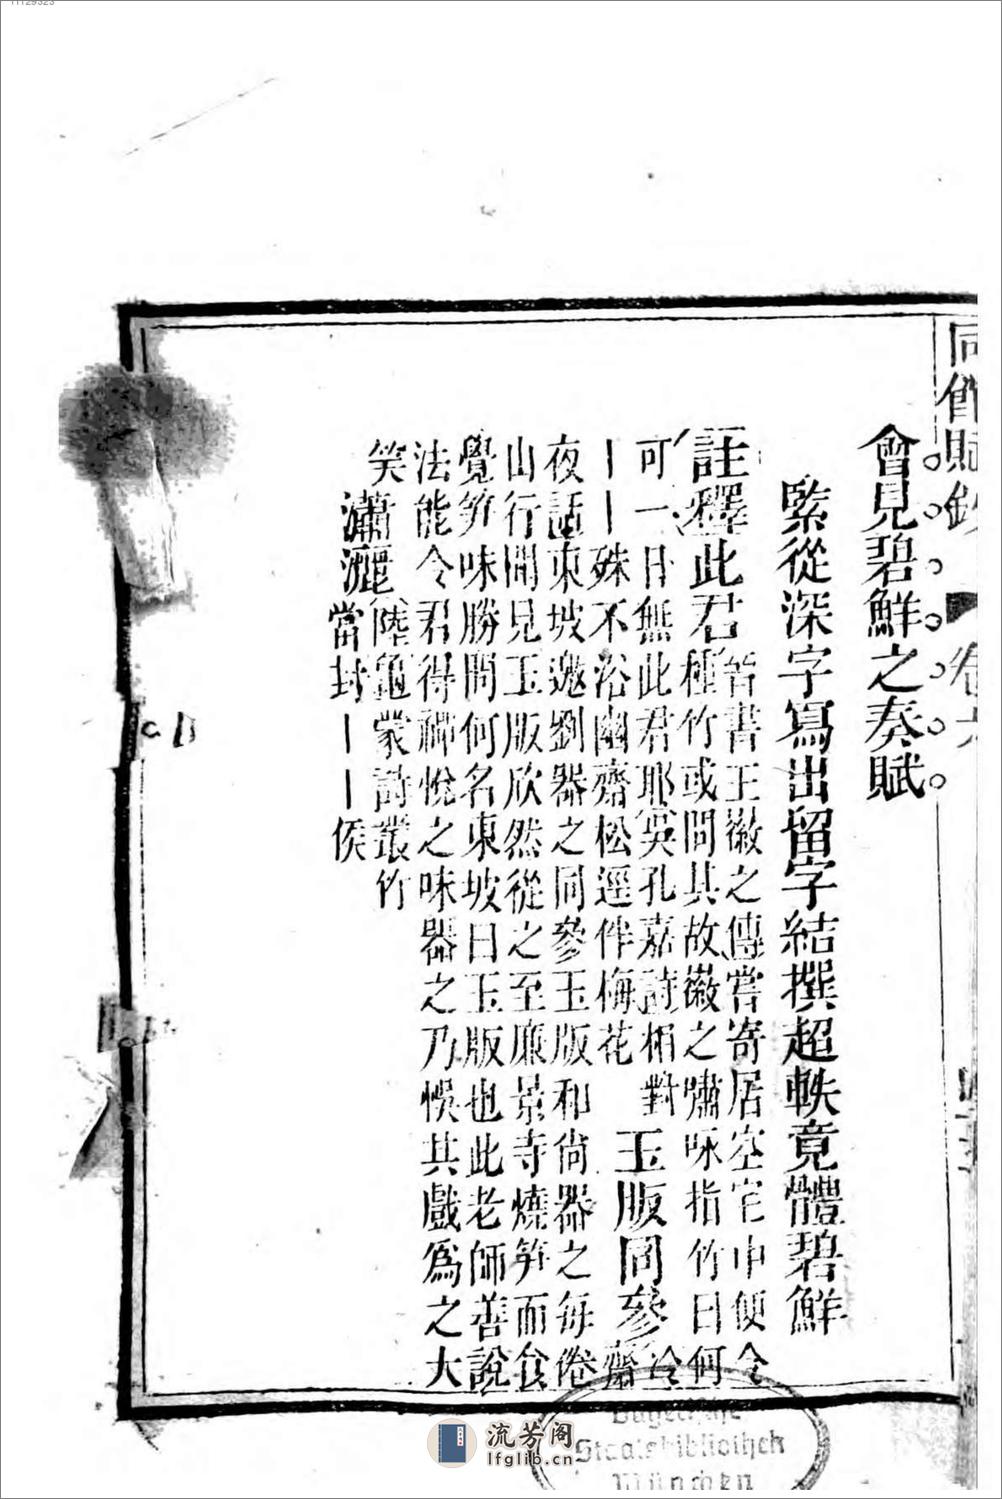 11129323
會見碧鮮之奏賦
緊從深字寫出留字結撰超軼竟體碧鮮
註釋 此君 晉書王徽之傳嘗寄居空宅中便令
種竹或問其故徽之嘯咏指竹曰何
可一日無此君耶 吳孔嘉詩相對
丨丨殊不俗幽齋松逕伴梅花 玉版同參 冷齋
夜話東坡邀劉器之同參玉版和尚器之每倦
山行聞見玉版欣然從之至廉景寺燒笋而食
覺笋味勝問何名東坡曰玉版也此老師善說
法能令君得禪悅之味器之乃悞其戲為之大
笑 瀟灑 陸龜蒙詩叢竹
當封丨丨侯
賦鈔 卷六
Bayerische
Staatsbibliothek
München
流芳阁
lfglib.cn